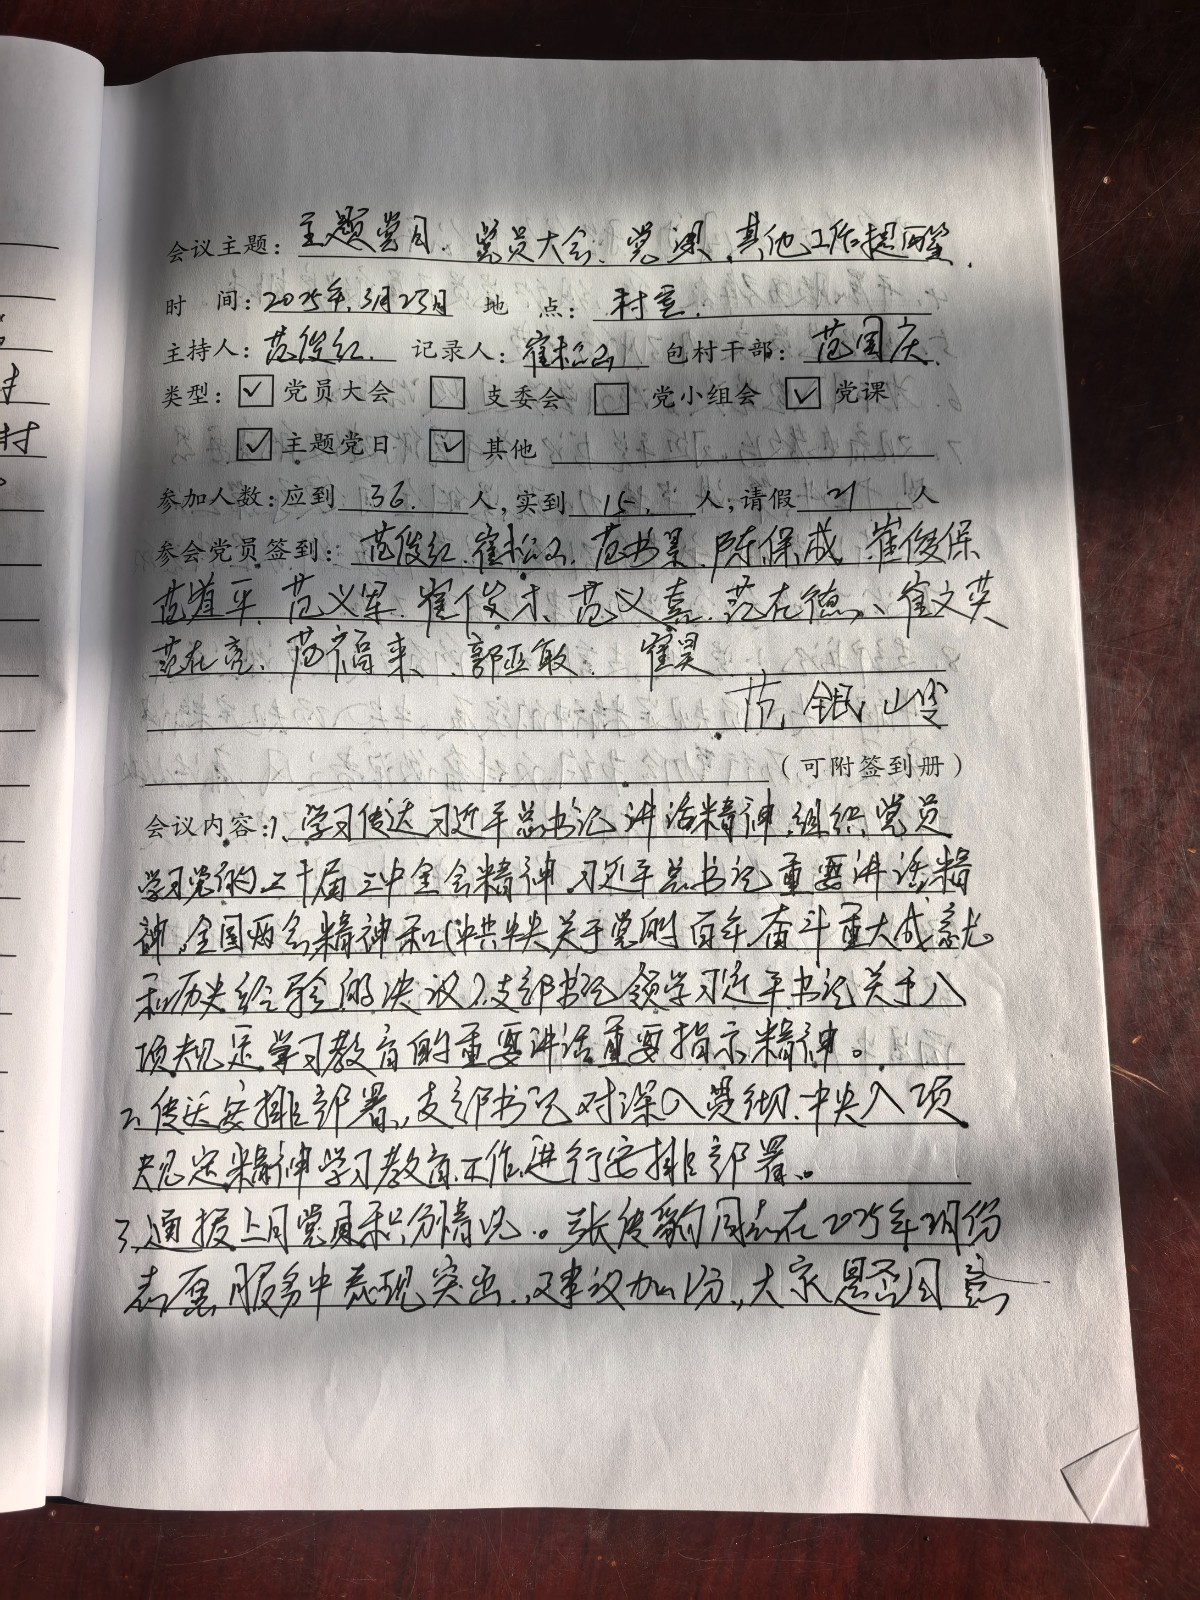 会议主题：主题党日、党员大会、党课、其他工作提醒.
时 间：2025年3月23日 地 点：村室.
主持人：范俊红. 记录人：崔松山 包村干部：范国庆.
类型：☑ 党员大会 □ 支委会 □ 党小组会 ☑ 党课
☑ 主题党日 ☑ 其他
参加人数：应到 36. 人，实到 15. 人，请假 21 人
参会党员签到：范俊红、崔松山、范书景、陈保成、崔俊保
范道平、范义军、崔俊才、范义嘉、范在德、、崔文英
范在亮、范福来、郭亚敏、 崔昊
范
（可附签到册）
会议内容：1、学习传达习近平总书记讲话精神，组织党员
学习党的二十届三中全会精神，习近平总书记重要讲话精
神，全国两会精神和《中共中央关于党的百年奋斗重大成就
和历史经验的决议》，支部书记领学习近平书记关于八
项规定学习教育的重要讲话重要指示精神。
2、传达安排部署，支部书记对深入贯彻中央八项
规定精神学习教育工作进行安排部署。
3、通报上月党员积分情况。张传豹同志在2025年2月份
志愿服务中表现突出，建议加1分，大家是否同意